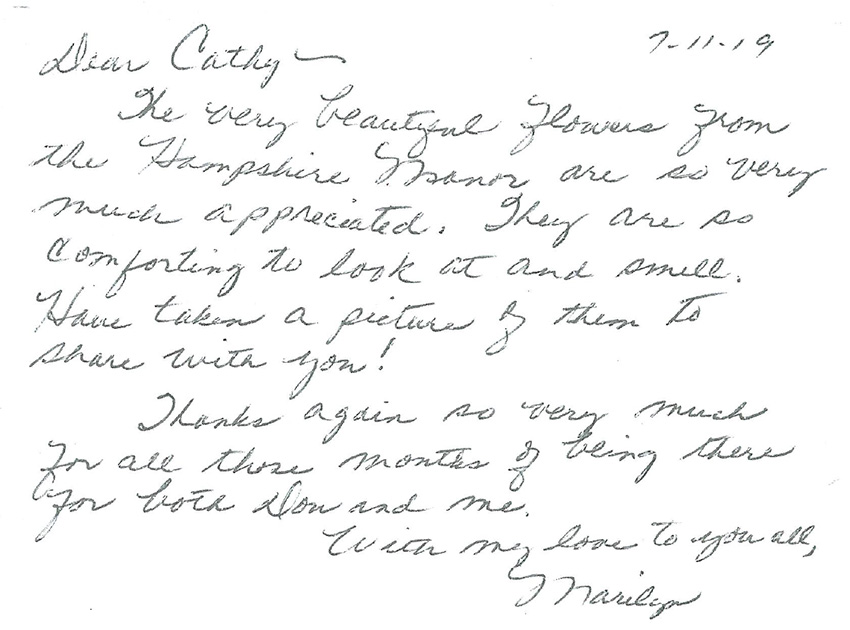 7-11-19
Dear Cathy —
The very beautiful flowers from
the Hampshire Manor are so very
much appreciated. They are so
comforting to look at and smell.
Have taken a picture of them to
share with you!
Thanks again so very much
for all those months of being there
for both Don and me.
With my love to you all,
Marilyn